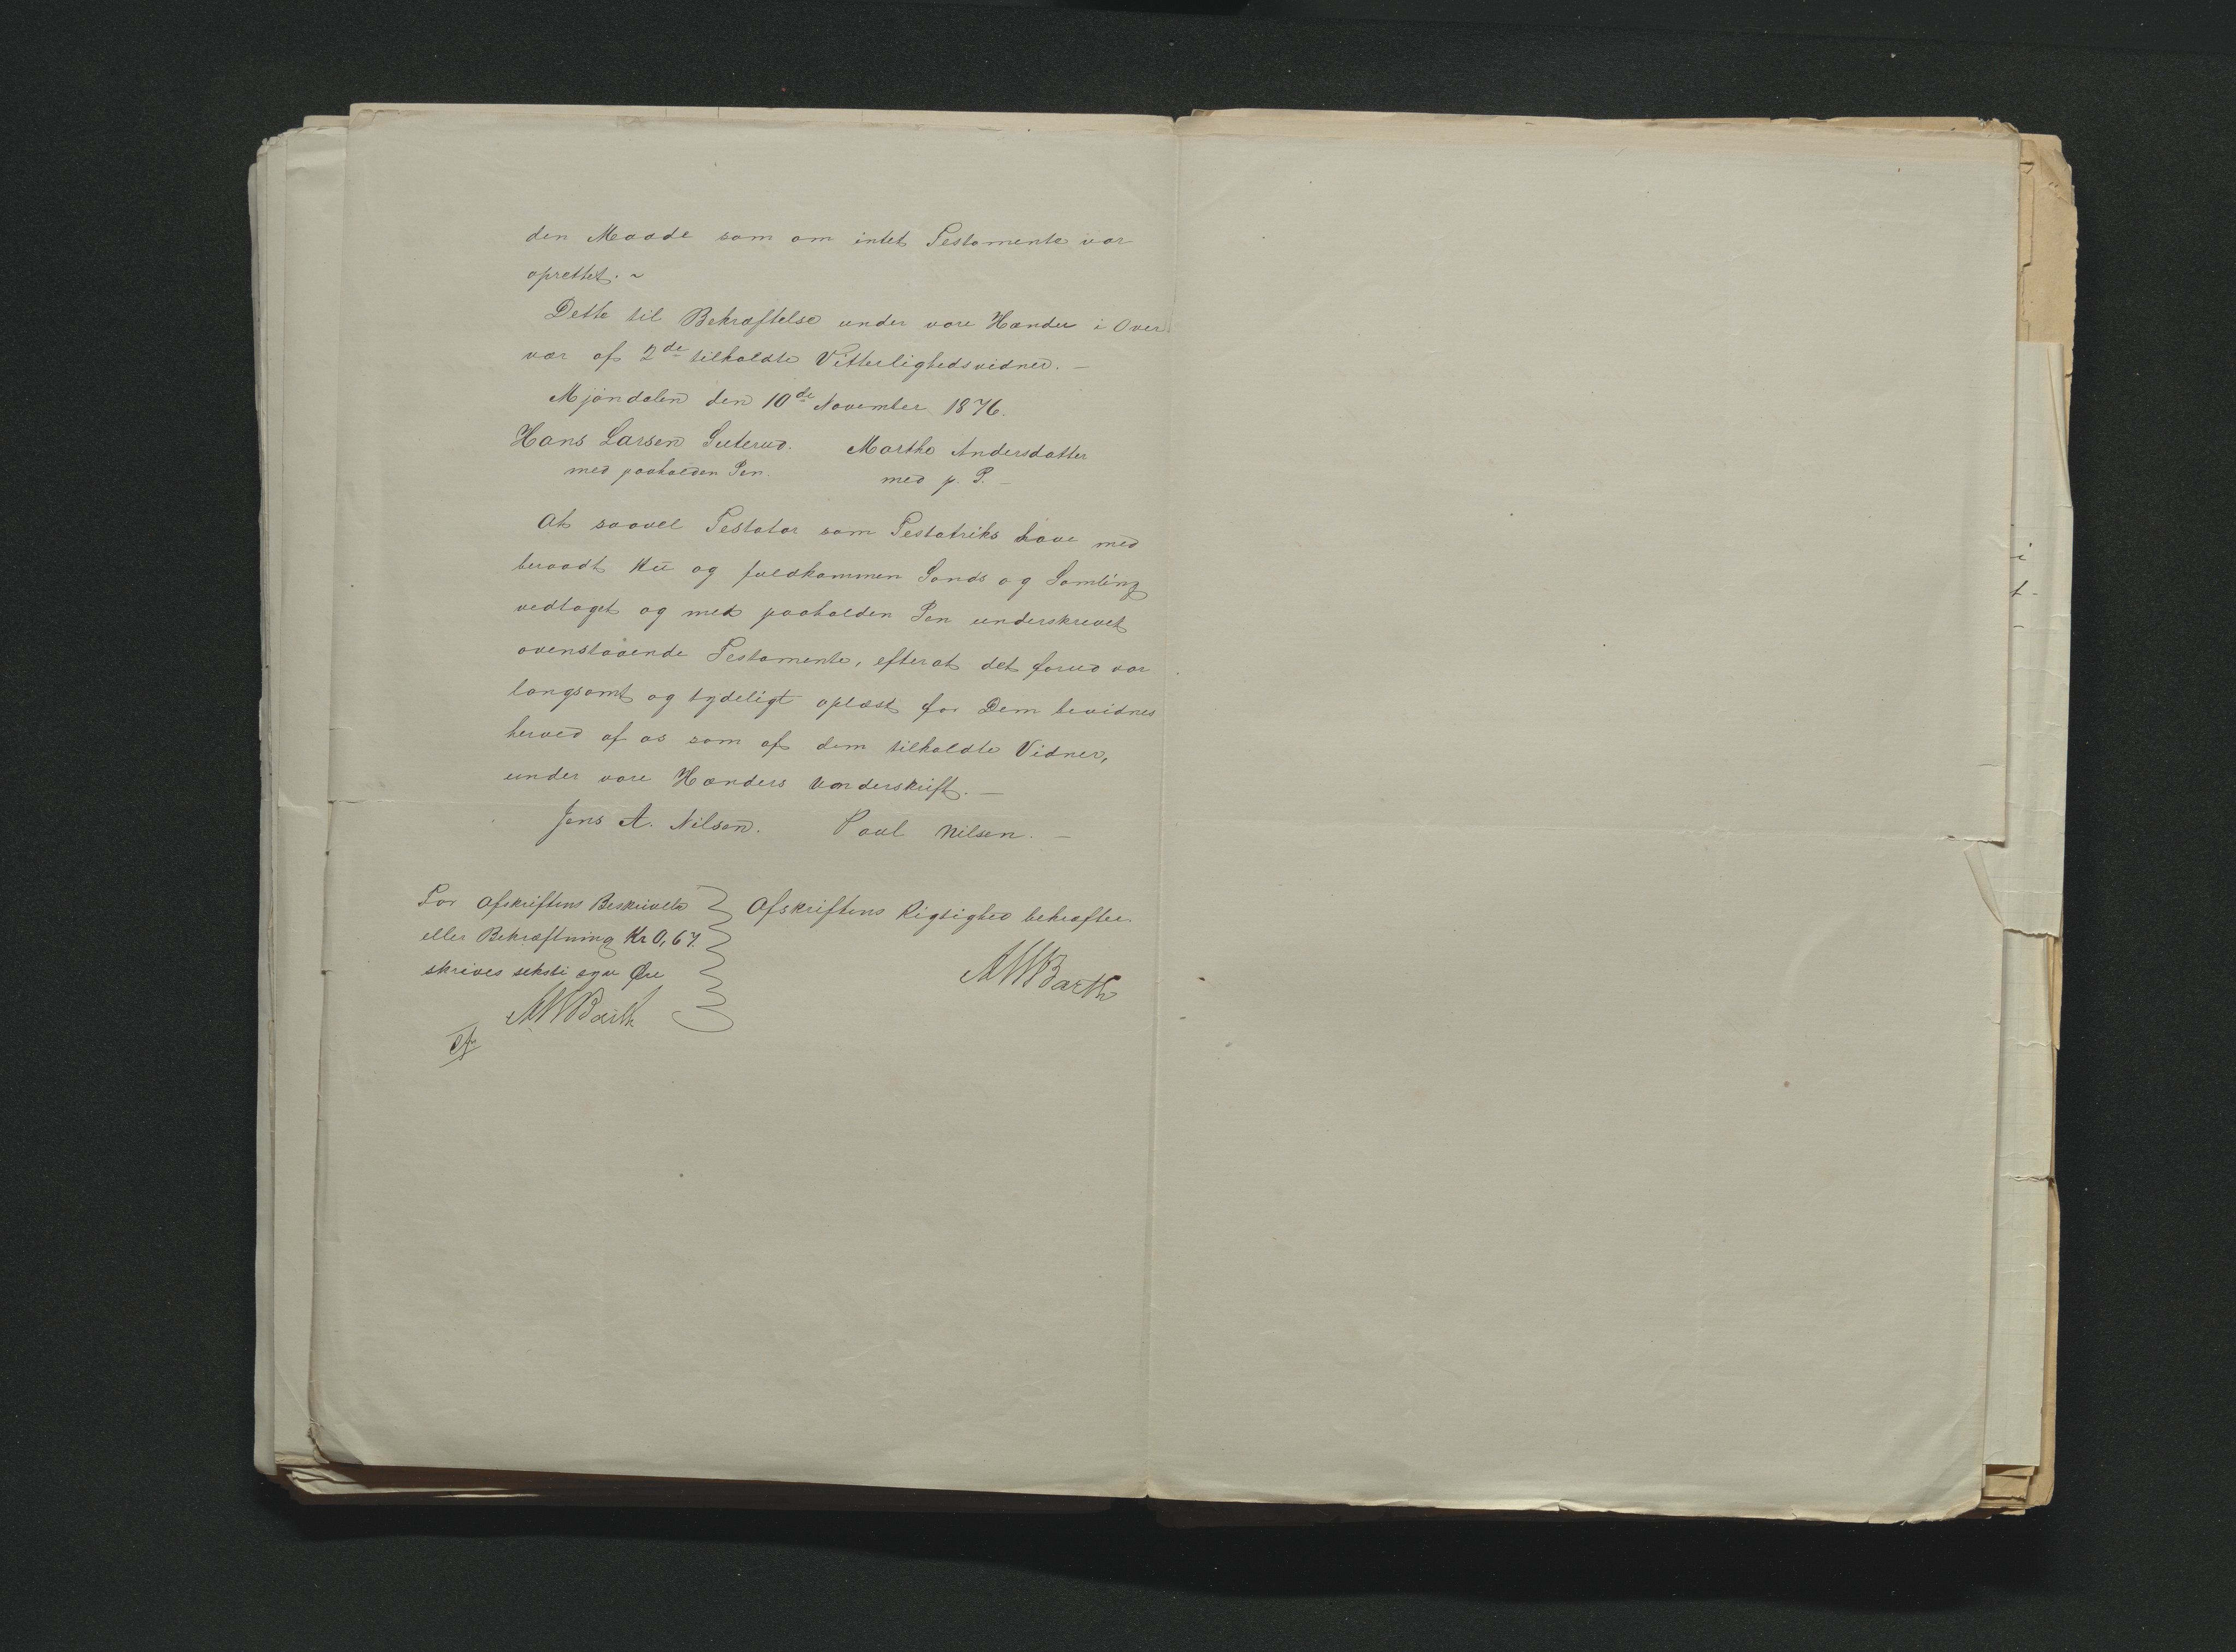 den Maade som om intet Testamente var
oprettet. ~
Dette til Bekræftelse under vore Hænder i Over
vær af 2de tilkaldte Vitterlighedsvidner. –
Mjøndalen den 10de November 1876.
Hans Larsen Suterud. Marthe Andersdatter
med paaholden Pen. med p. P. –
At saavel Testator som Testatriks have med
beraadt Hu og fuldkommen Sands og Samling
vedtaget og med paaholden Pen underskrevet
ovenstaaende Testamente, efterat det forud var
langsomt og tydeligt oplæst for Dem bevidnes
herved af os som af dem tilkaldte Vidner,
under vore Hænders Underskrift. –
Jens A. Nilsen. Paul Nilsen. –
For Afskriftens Beskrivelse
eller Bekræftning Kr 0,67.
skrives seksti syv Øre
AWBarth
Afskriftens Rigtighed bekræftes
AWBarth
i
t-